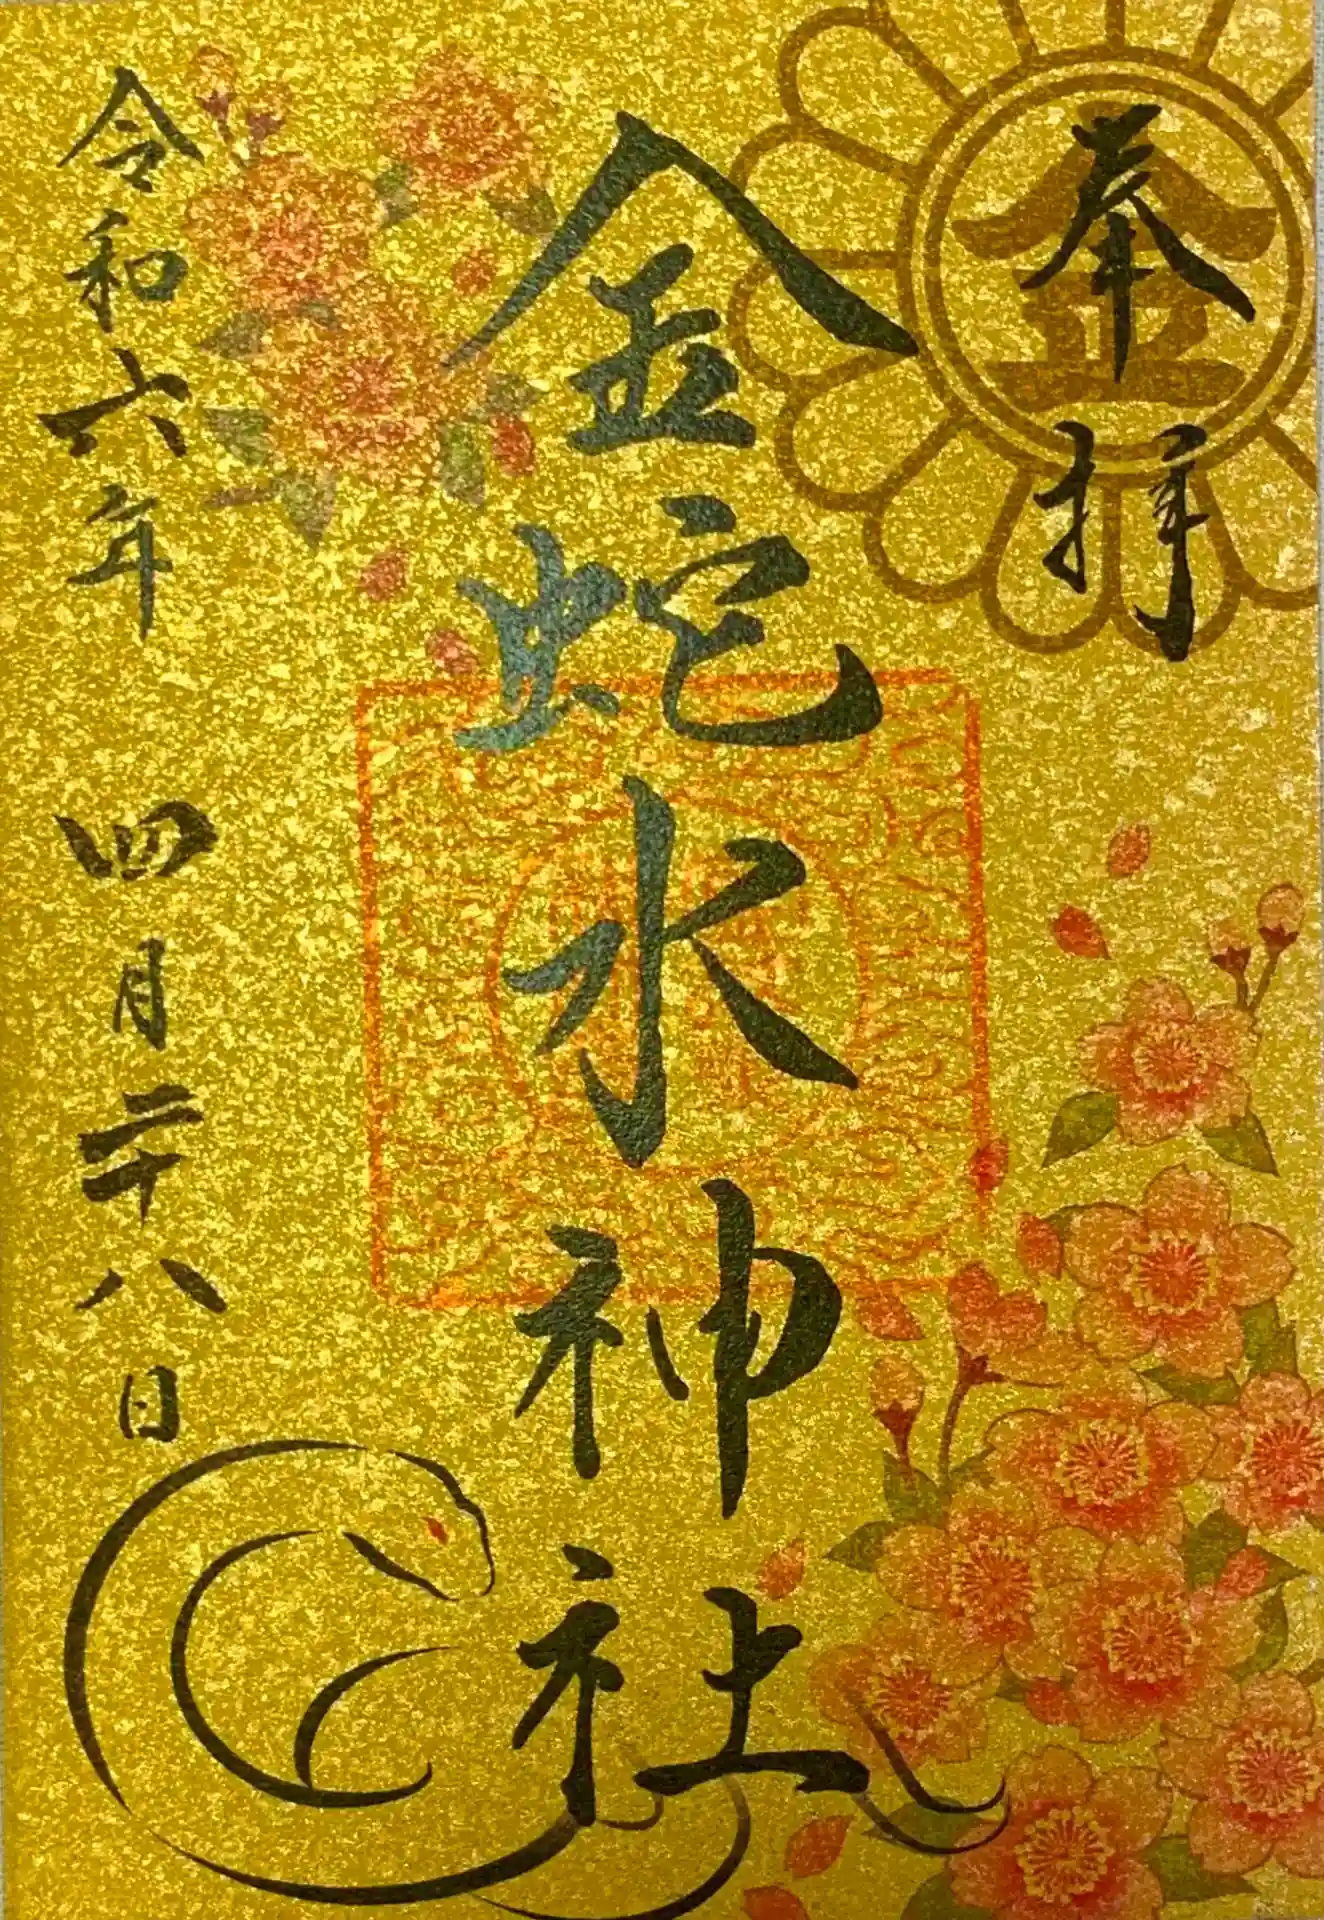 奉拝
金
金蛇水神社
令和六年 四月二十八日